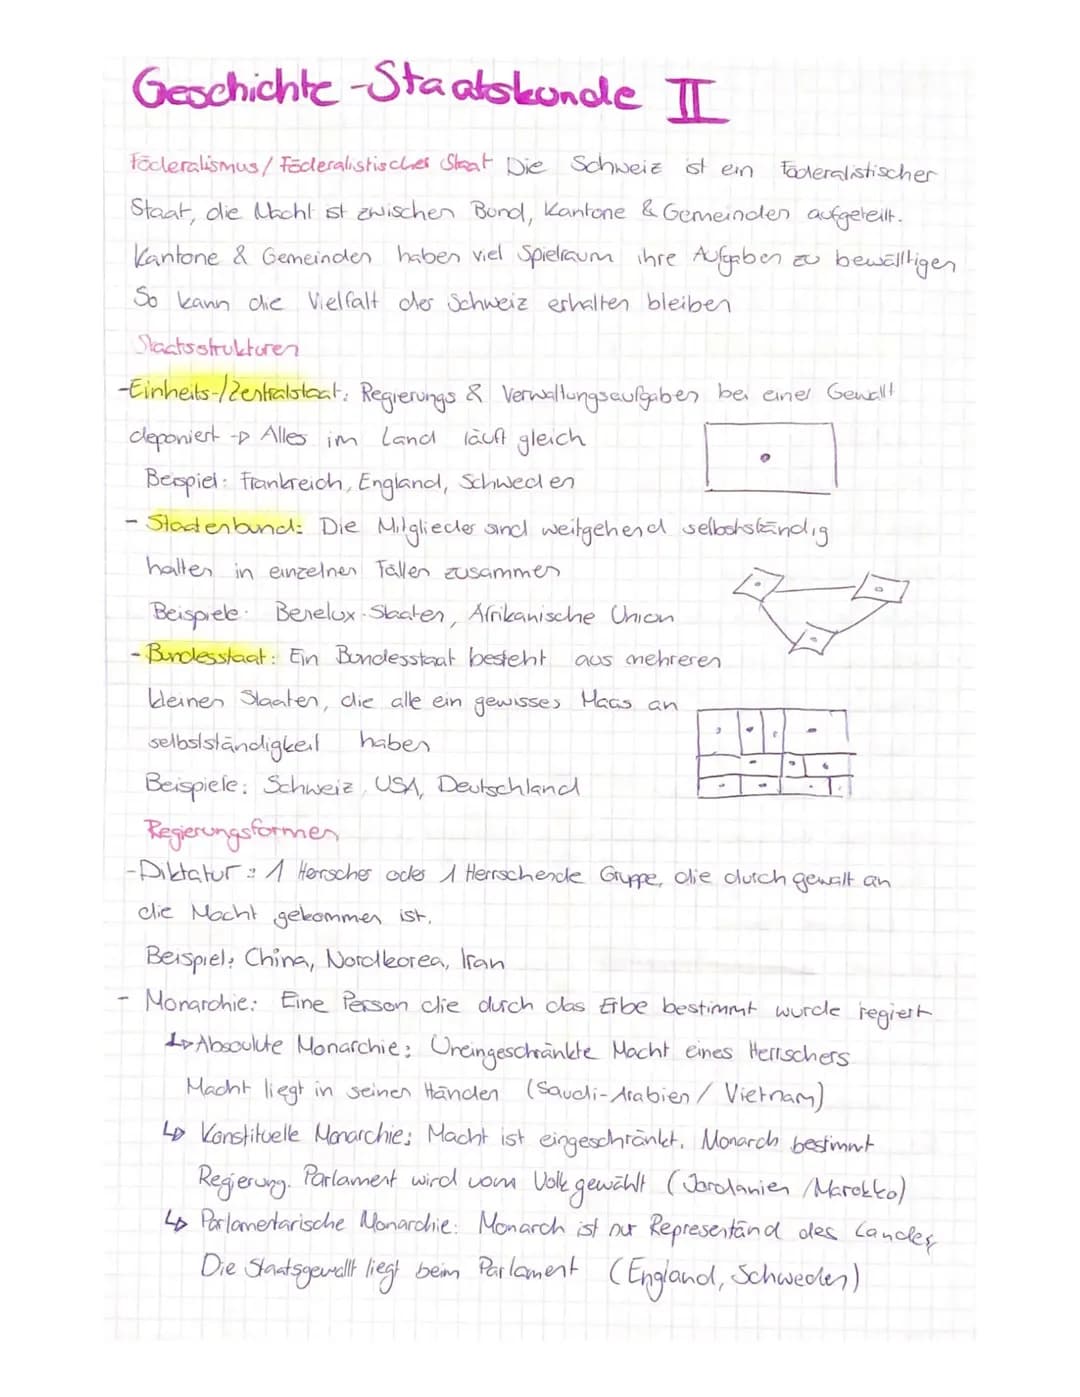 Geschichte - Staatskunde II
Föderalismus / Föderalistischer Staat Die Schweiz ist ein föderalistischer
Staat, die Macht ist zwischen Bund, Kantone & Gemeinden aufgeteilt.
Kantone & Gemeinden haben viel Spielraum ihre Aufgaben zu bewältigen
So kann die Vielfalt der Schweiz erhalten bleiben
Staatsstrukturen
-Einheits-/Zentralstaat: Regierungs & Verwaltungsaufgaben bei einer Gewalt
deponiert -> Alles im Land läuft gleich
Beispiel: Frankreich, England, Schweden
- Staatenbund: Die Mitglieder sind weitgehend selbstständig
halten in einzelnen Fällen zusammen
Beispiele: Benelux-Staaten, Afrikanische Union
- Bundesstaat: Ein Bundesstaat besteht aus mehreren
kleinen Staaten, die alle ein gewisses Maas an
selbstständigkeit haben
Beispiele: Schweiz, USA, Deutschland
Regierungsformen
-Diktatur: 1 Herrscher oder 1 Herrschende Gruppe, die durch gewalt an
die Macht gekommen ist.
Beispiel: China, Nordkorea, Iran
- Monarchie: Eine Person die durch das Erbe bestimmt wurde regiert
↳ Absoulute Monarchie: Uneingeschränkte Macht eines Herrschers
Macht liegt in seinen Händen (Saudi-Arabien / Vietnam)
↳ Konstituelle Monarchie: Macht ist eingeschränkt. Monarch bestimmt
Regierung. Parlament wird vom Volk gewählt (Jordanien / Marokko)
↳ Parlamentarische Monarchie: Monarch ist nur Representänd des Landes
Die Staatsgewallt liegt beim Parlament (England, Schweden)